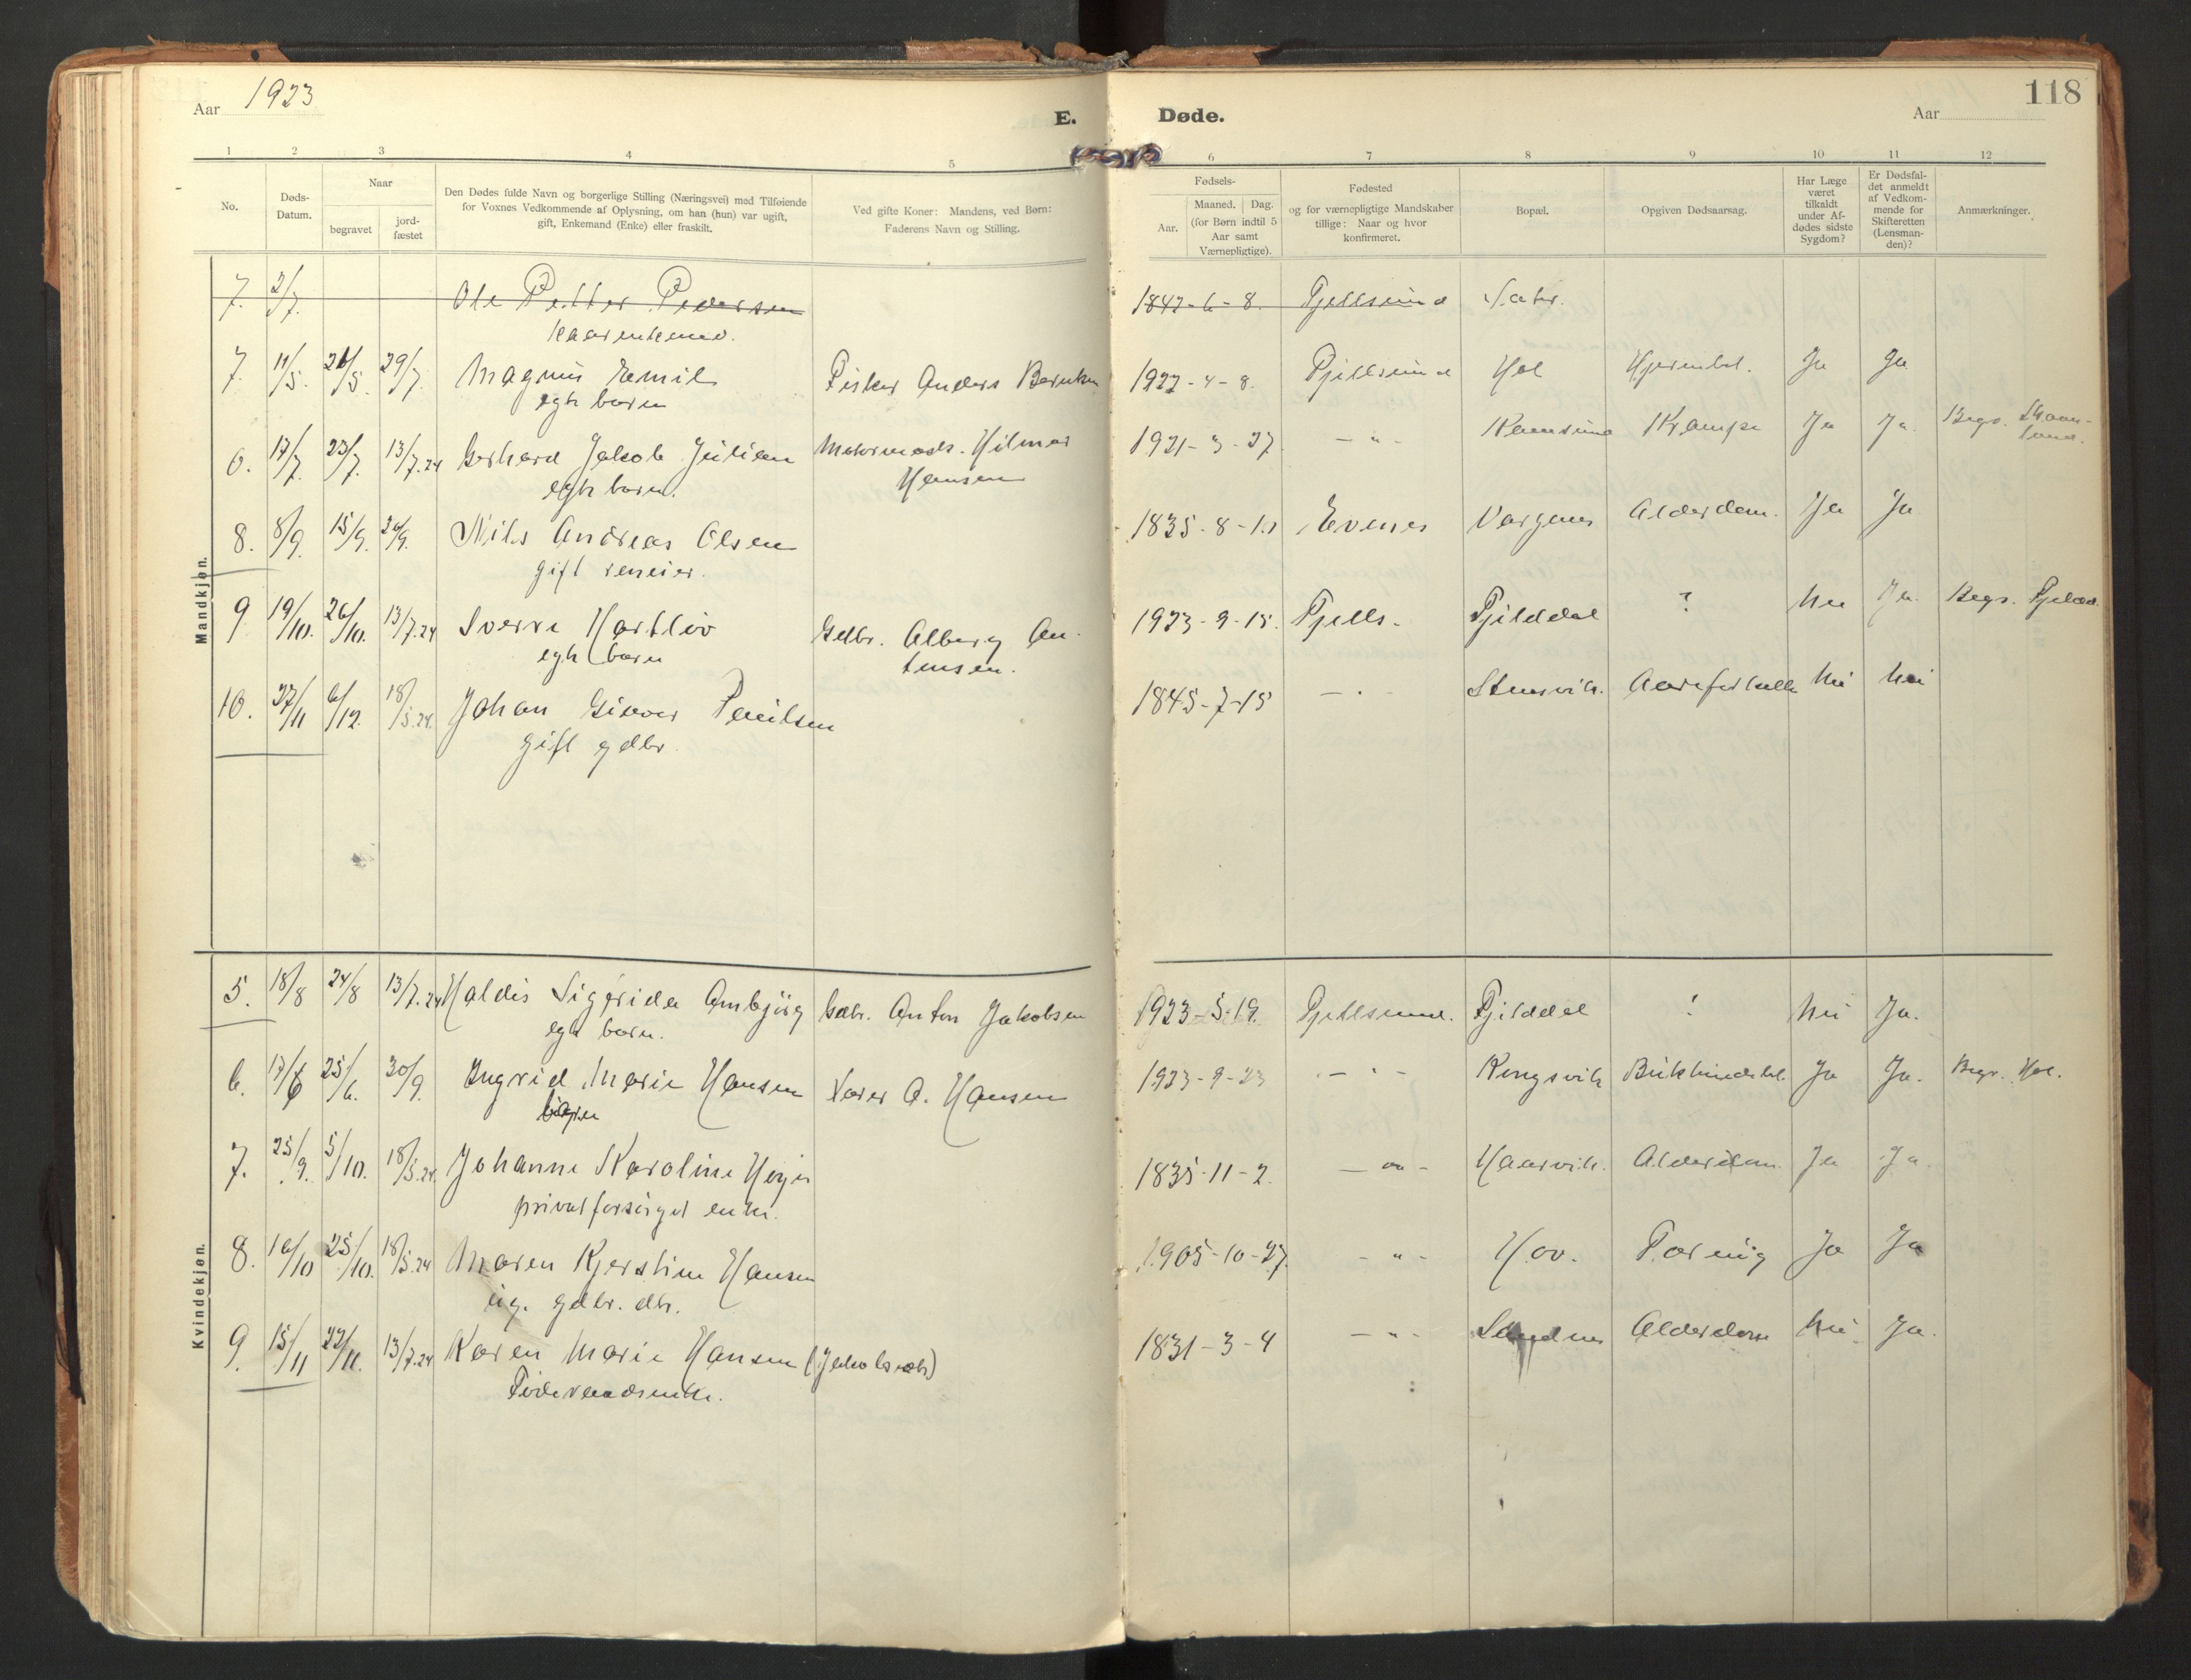 Aar 1923
E. Døde.
Aar
118
1 2 3 4 5 6 7 8 9 10 11 12
No.
Døds-
Datum.
Naar
begravet
jord-
fæstet
Den Dødes fulde Navn og borgerlige Stilling (Næringsvei) med Tilføiende
for Voxnes Vedkommende af Oplysning, om han (hun) var ugift,
gift, Enkemand (Enke) eller fraskilt.
Ved gifte Koner: Mandens, ved Børn:
Faderens Navn og Stilling.
Fødsels-
Aar.
Maaned. Dag.
(for Børn indtil 5
Aar samt
Værnepligtige).
Fødested
og for værnepligtige Mandskaber
tillige: Naar og hvor
konfirmeret.
Bopæl.
Opgiven Dødsaarsag.
Har Læge
været
tilkaldt
under Af-
dødes sidste
Sygdom?
Er Dødsfal-
det anmeldt
af Vedkom-
mende for
Skifteretten
(Lensman-
den)?
Anmærkninger.
Mandkjøn.
7. 2/7. Ole Petter Pedersen 1842-6-8. Fjellsund
7. 11/5. 29/7. Magnus Emil Fisker Anders Berntsen 1922-4-8. Fjellsund Hol Ja Ja
egte barn
6. 17/7. 23/7. 13/7.24 Gerhard Jakob Julian Hilmar 1921-3-27. -"- Ramsund Krampe Ja Ja Begr. Skaan-
egte barn. Hansen land.
8. 8/9. 15/9. Nils Andreas Olsen 1835-8-10 Evenes Alderdom. Ja Ja
gift reneier.
9 19/10. 26/10. 13/7.24 Sverre Hartliv Gdbr. Alberg An- 1923-9-15. Fjells- Fjelddal ? Nei Ja. Begr.
egte barn tonsen.
10. 27/11 6/12. 18/5.24. Johan Giæver Paulsen 1845-7-15 -"- Stensvik. Aareforkalk Nei Nei
gift gdbr.
Kvindekjøn.
5. 18/8 24/8 13/7.24 Haldis Sigfrida Arnbjørg Gdbr. Anton Jakobsen 1923-5-19. Fjellsund. Fjelddal ? Nei Ja.
egte barn.
6. 25/6. 30/9. Ingrid Marie Hansen A. Hansen 1923-9-23 -"- Kongsvik Ja Ja. Begr. Hol.
7. 25/9. 5/10. 18/5.24. Johanne Karoline 1835-11-2. -"- Haarvik. Alderdom Ja Ja.
privat forsørget enke.
8. 16/10 25/10. 18/5.24 Maren Kjerstine Hansen 1905-10-27. -"- Hov. Ja Ja
ug. gdbr. dtr.
9. 15/11 22/11. 13/7.24 Karen Marie Hansen 1831-3-4 -"- Sandnes Alderdom Nei Ja.